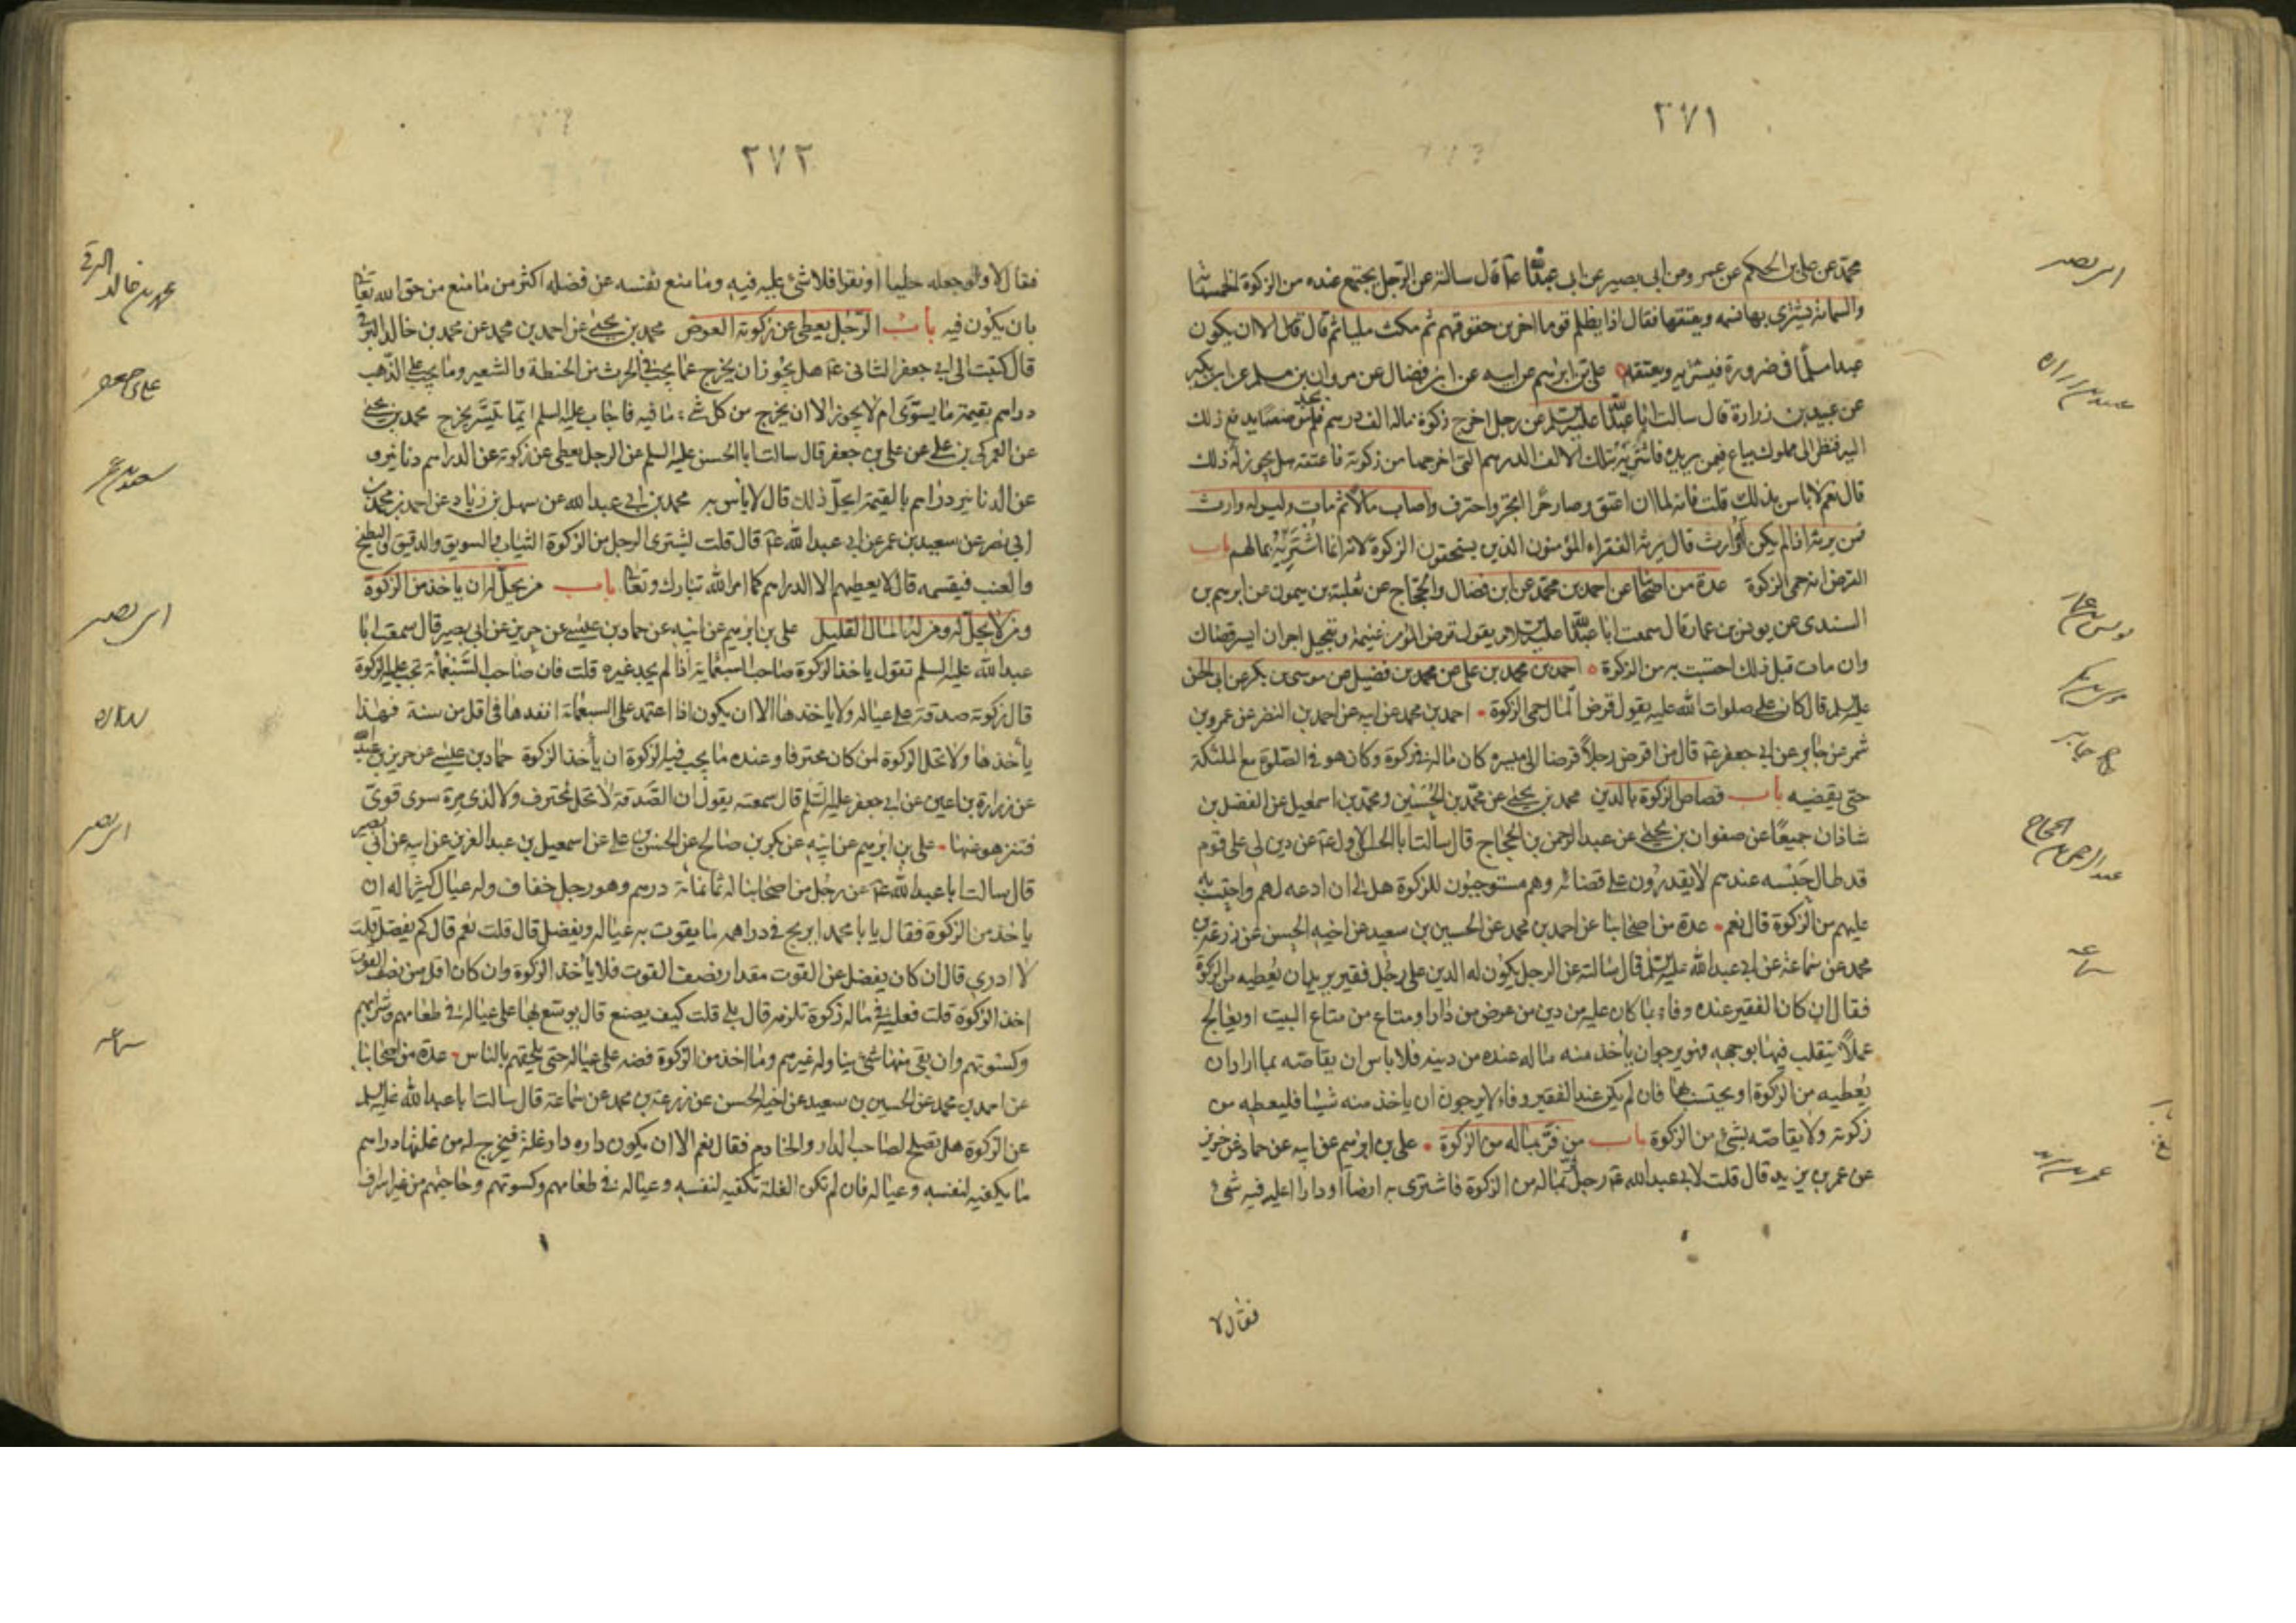 ٢٧١
محمد عن علي بن الحكم عن عمرو عن ابي بصير عن ابي عبدالله ع قال سالته عن الرجل يجتمع عنده من الزكوة الخمسمائة
والستمائة يشتري بها نسمه ويعتقها فقال اذا يظلم قوما اخرين حقوقهم ثم مكث مليا ثم قال الا ان يكون
عبدا مسلما في ضرورة فيشتريه ويعتقه علي بن ابرهيم عن ابيه عن ابن فضال عن مروان بن مسلم عن ابن بكير
عن عبيد بن زرارة قال سالت ابا عبدالله عليه السلم عن رجل اخرج زكوة ماله الف درهم فلم يجد موضعا يدفع ذلك
اليه فنظر الى مملوك يباع فيمن يريده فاشتريه بتلك الالف الدرهم التي اخرجها من زكوته فاعتقه هل يجوز له ذلك
قال نعم لا باس بذلك قلت فانه لما ان اعتق وصار حرا اتجر واحترف واصاب مالا ثم مات وليس له وارث
فمن يرثه اذا لم يكن له وارث قال يرثه الفقراء المؤمنون الذين يستحقون الزكوة لانه انما اشتري بمالهم باب
القرض انه حمى الزكوة عدة من اصحابنا عن احمد بن محمد عن ابن فضال والحجاج عن ثعلبة بن ميمون عن ابرهيم بن
السندي عن يونس بن عمار قال سمعت ابا عبدالله عليه السلم يقول قرض المؤمن غنيمة وتعجيل اجر ان ايسر قضاك
وان مات قبل ذلك احتسبت به من الزكوة احمد بن محمد عن محمد بن علي عن محمد بن فضيل عن موسى بن بكر عن ابي الحسن
عليه السلم قال كان علي صلوات الله عليه يقول قرض المال حمى الزكوة احمد بن محمد عن ابيه عن احمد بن النضر عن عمرو بن
شمر عن جابر عن ابي جعفر ع قال من اقرض رجلا قرضا الى ميسره كان ماله في زكوة وكان هو في الصلوة مع الملئكة
حتى يقضيه باب قصاص الزكوة بالدين محمد بن يحيى عن محمد بن الحسين ومحمد بن اسمعيل عن الفضل بن
شاذان جميعا عن صفوان بن يحيى عن عبد الرحمن بن الحجاج قال سالت ابا الحسن الاول ع عن دين لي على قوم
قد طال حبسه عندهم لا يقدرون على قضائه وهم مستوجبون للزكوة هل لي ان ادعه لهم واحتسب به
عليهم من الزكوة قال نعم عدة من اصحابنا عن احمد بن محمد عن الحسين بن سعيد عن اخيه الحسن عن زرعة بن
محمد عن سماعة عن ابي عبدالله عليه السلم قال سالته عن الرجل يكون له الدين على رجل فقير يريد ان يعطيه من الزكوة
فقال ان كان الفقير عنده وفاء بما كان عليه من دين من عرض من دار او متاع من متاع البيت او يعالج
عملا يتقلب فيها بوجهه فهو يرجو ان ياخذ منه ماله عنده من دينه فلا باس ان يقاصه بما اراد ان
يعطيه من الزكوة او يحتسب بها فان لم يكن عند الفقير وفاء لا يرجو ان ياخذ منه شيئا فليعطه من
زكوته ولا يقاصه بشئ من الزكوة باب من فر بماله من الزكوة علي بن ابرهيم عن ابيه عن حماد عن حريز
عن عمر بن يزيد قال قلت لابي عبدالله ع رجل فر بماله من الزكوة فاشترى به ارضا او دارا اعليه فيه شئ
فقال لا
ابي بصير
عبيد بن زراره
يونس بن عمار
موسى بن بكر
جابر
عبدالرحمن بن الحجاج
سماعه
عمر بن يزيد
٢٧٢
فقال لا ولو جعله حليا او نقرا فلا شئ عليه فيه وما منع نفسه من فضله اكثر من ما منع من حق الله تعالى
بان يكون فيه باب الرجل يعطي عن زكوته العوض محمد بن يحيى عن احمد بن محمد عن محمد بن خالد البرقي
قال كتبت الى ابي جعفر الثاني ع هل يجوز ان يخرج عما يجب في الحرث من الحنطة والشعير وما يجب على الذهب
دراهم بقيمة ما يسوى ام لا يجوز الا ان يخرج من كل شئ ما فيه فاجاب عليه السلم ايما تيسر يخرج محمد بن يحيى
عن العمركي بن علي عن علي بن جعفر قال سالت ابا الحسن عليه السلم عن الرجل يعطي عن زكوته عن الدراهم دنانير و
عن الدنانير دراهم بالقيمة ايحل ذلك قال لا باس به محمد بن ابي عبدالله عن سهل بن زياد عن احمد بن محمد بن
ابي نصر عن سعيد بن عمر عن ابي عبدالله ع قال قلت يشتري الرجل من الزكوة الثياب والسويق والدقيق والبطيخ
والعنب فيقسمه قال لا يعطيهم الا الدراهم كما امر الله تبارك وتعالى باب من يحل له ان ياخذ من الزكوة
ومن لا يحل له ومن له المال القليل علي بن ابرهيم عن ابيه عن حماد بن عيسى عن حريز عن ابي بصير قال سمعت ابا
عبدالله عليه السلم يقول ياخذ الزكوة صاحب السبعمائة اذا لم يجد غيره قلت فان صاحب السبعمائة تجب عليه الزكوة
قال زكوته صدقة على عياله ولا ياخذها الا ان يكون اذا اعتمد على السبعمائة انفدها في اقل من سنة فهذا
ياخذها ولا تحل الزكوة لمن كان محترفا وعنده ما يجب فيه الزكوة ان ياخذ الزكوة حماد بن عيسى عن حريز بن عبدالله
عن زرارة بن اعين عن ابي جعفر عليه السلم قال سمعته يقول ان الصدقة لا تحل لمحترف ولا لذي مرة سوى قوي
فتنزهوا عنها علي بن ابرهيم عن ابيه عن بكر بن صالح عن الحسن بن علي عن اسمعيل بن عبد العزيز عن ابيه عن ابي بصير
قال سالت ابا عبدالله ع عن رجل من اصحابنا له ثمانمائة درهم وهو رجل خفاف وله عيال كثير اله ان
ياخذ من الزكوة فقال يا با محمد ايربح في دراهمه ما يقوت به عياله ويفضل قال قلت نعم قال كم يفضل قلت
لا ادري قال ان كان يفضل عن القوت مقدار نصف القوت فلا ياخذ الزكوة وان كان اقل من نصف القوت
اخذ الزكوة قلت فعليه في ماله زكوة تلزمه قال بلى قلت كيف يصنع قال يوسع بها على عياله في طعامهم وشرابهم
وكسوتهم وان بقي منها شئ يناوله غيرهم وما اخذ من الزكوة فضه على عياله حتى يلحقهم بالناس عدة من اصحابنا
عن احمد بن محمد عن الحسين بن سعيد عن اخيه الحسن عن زرعة بن محمد عن سماعة قال سالت ابا عبدالله عليه السلم
عن الزكوة هل تصلح لصاحب الدار والخادم فقال نعم الا ان يكون داره دار غلة فيخرج له من غلتها دراهم
ما يكفيه لنفسه وعياله فان لم تكن الغلة تكفيه لنفسه وعياله في طعامهم وكسوتهم وحاجتهم من غير اسراف
محمد بن خالد البرقي
علي بن جعفر
سعيد بن عمر
ابي بصير
زراره
ابي بصير
سماعه